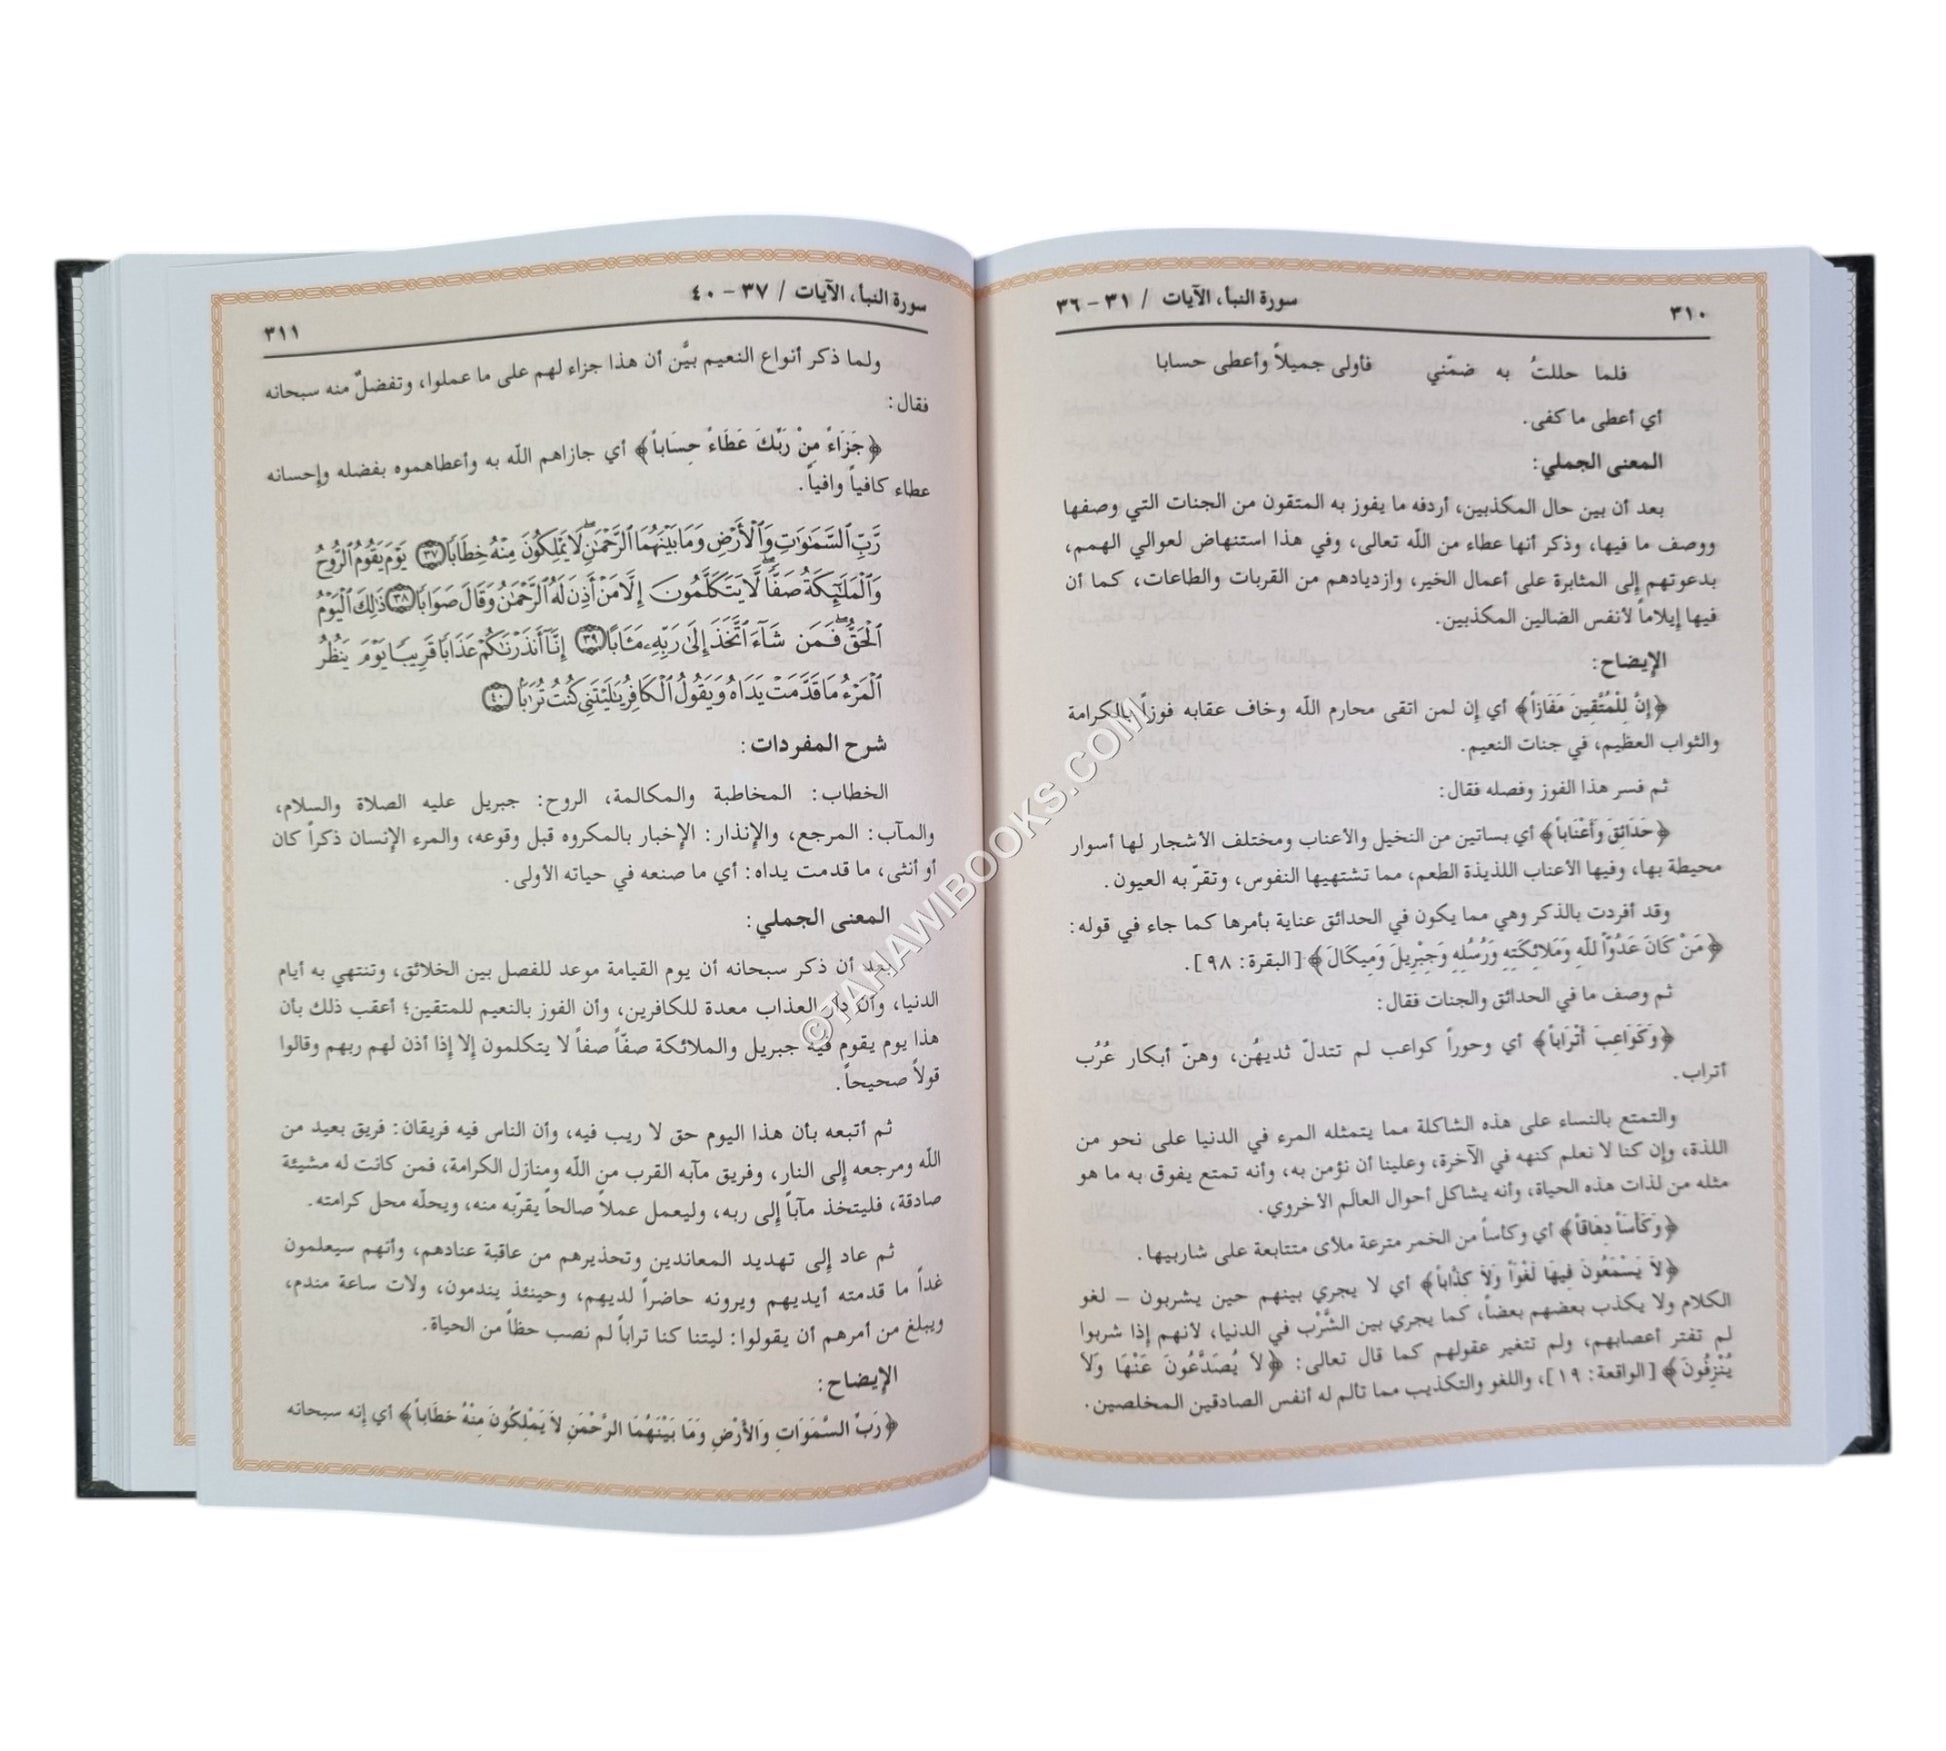 ٣١٠
سورة النبأ، الآيات / ٣١ - ٣٦
فلما حللتُ به ضمّني فأولى جميلاً وأعطى حسابا
أي أعطى ما كفى.
المعنى الجملي:
بعد أن بين حال المكذبين، أردفه ما يفوز به المتقون من الجنات التي وصفها
ووصف ما فيها، وذكر أنها عطاء من اللّه تعالى، وفي هذا استنهاض لعوالي الهمم،
بدعوتهم إلى المثابرة على أعمال الخير، وازديادهم من القربات والطاعات، كما أن
فيها إيلاماً لأنفس الضالين المكذبين.
الإيضاح:
﴿إِنَّ لِلْمُتَّقِينَ مَفَازاً﴾ أي إن لمن اتقى محارم اللّه وخاف عقابه فوزاً بالكرامة
والثواب العظيم، في جنات النعيم.
ثم فسر هذا الفوز وفصله فقال:
﴿حَدَائِقَ وَأَعْنَاباً﴾ أي بساتين من النخيل والأعناب ومختلف الأشجار لها أسوار
محيطة بها، وفيها الأعناب اللذيذة الطعم، مما تشتهيها النفوس، وتقرّ به العيون.
وقد أفردت بالذكر وهي مما يكون في الحدائق عناية بأمرها كما جاء في قوله:
﴿مَنْ كَانَ عَدُوّاً للّهِ وَمَلائِكَتِهِ وَرُسُلِهِ وَجِبْرِيلَ وَمِيكَالَ﴾ [البقرة: ٩٨].
ثم وصف ما في الحدائق والجنات فقال:
﴿وَكَوَاعِبَ أَتْرَاباً﴾ أي وحوراً كواعب لم تتدلّ ثديهُن، وهنّ أبكار عُرُب
أتراب.
والتمتع بالنساء على هذه الشاكلة مما يتمثله المرء في الدنيا على نحو من
اللذة، وإن كنا لا نعلم كنهه في الآخرة، وعلينا أن نؤمن به، وأنه تمتع يفوق به ما هو
مثله من لذات هذه الحياة، وأنه يشاكل أحوال العالَم الأخروي.
﴿وَكَأْسَاً دِهَاقاً﴾ أي وكأساً من الخمر مترعة ملأى متتابعة على شاربيها.
﴿لاَ يَسْمَعُونَ فِيهَا لَغْوَاً وَلاَ كِذَّاباً﴾ أي لا يجري بينهم حين يشربون - لغو
الكلام ولا يكذب بعضهم بعضاً، كما يجري بين الشَّرْب في الدنيا، لأنهم إذا شربوا
لم تفتر أعصابهم، ولم تتغير عقولهم كما قال تعالى: ﴿لاَ يُصَدَّعُونَ عَنْهَا وَلاَ
يُنْزِفُونَ﴾ [الواقعة: ١٩]، واللغو والتكذيب مما تألم له أنفس الصادقين المخلصين.
سورة النبأ، الآيات / ٣٧ - ٤٠
٣١١
ولما ذكر أنواع النعيم بيَّن أن هذا جزاء لهم على ما عملوا، وتفضلٌ منه سبحانه
فقال:
﴿جَزَاءً مِنْ رَبِّكَ عَطَاءً حِسَاباً﴾ أي جازاهم اللّه به وأعطاهموه بفضله وإحسانه
عطاء كافياً وافياً.
رَّبِّ ٱلسَّمَٰوَٰتِ وَٱلْأَرْضِ وَمَا بَيْنَهُمَا ٱلرَّحْمَٰنِ ۖ لَا يَمْلِكُونَ مِنْهُ خِطَابًا ٣٧ يَوْمَ يَقُومُ ٱلرُّوحُ
وَٱلْمَلَٰٓئِكَةُ صَفًّا ۖ لَّا يَتَكَلَّمُونَ إِلَّا مَنْ أَذِنَ لَهُ ٱلرَّحْمَٰنُ وَقَالَ صَوَابًا ٣٨ ذَٰلِكَ ٱلْيَوْمُ
ٱلْحَقُّ ۖ فَمَن شَآءَ ٱتَّخَذَ إِلَىٰ رَبِّهِۦ مَـَٔابًا ٣٩ إِنَّآ أَنذَرْنَٰكُمْ عَذَابًا قَرِيبًا يَوْمَ يَنظُرُ
ٱلْمَرْءُ مَا قَدَّمَتْ يَدَاهُ وَيَقُولُ ٱلْكَافِرُ يَٰلَيْتَنِى كُنتُ تُرَٰبًۢا ٤٠
شرح المفردات:
الخطاب: المخاطبة والمكالمة، الروح: جبريل عليه الصلاة والسلام،
والمآب: المرجع، والإنذار: الإخبار بالمكروه قبل وقوعه، والمرء الإنسان ذكراً كان
أو أنثى، ما قدمت يداه: أي ما صنعه في حياته الأولى.
المعنى الجملي:
بعد أن ذكر سبحانه أن يوم القيامة موعد للفصل بين الخلائق، وتنتهي به أيام
الدنيا، وأن دار العذاب معدة للكافرين، وأن الفوز بالنعيم للمتقين؛ أعقب ذلك بأن
هذا يوم يقوم فيه جبريل والملائكة صفّاً صفاً لا يتكلمون إلا إذا أذن لهم ربهم وقالوا
قولاً صحيحاً.
ثم أتبعه بأن هذا اليوم حق لا ريب فيه، وأن الناس فيه فريقان: فريق بعيد من
اللّه ومرجعه إلى النار، وفريق مآبه القرب من اللّه ومنازل الكرامة، فمن كانت له مشيئة
صادقة، فليتخذ مآباً إلى ربه، وليعمل عملاً صالحاً يقرّبه منه، ويحلّه محل كرامته.
ثم عاد إلى تهديد المعاندين وتحذيرهم من عاقبة عنادهم، وأنهم سيعلمون
غداً ما قدمته أيديهم ويرونه حاضراً لديهم، وحينئذ يندمون، ولات ساعة مندم،
ويبلغ من أمرهم أن يقولوا: ليتنا كنا تراباً لم نصب حظاً من الحياة.
الإيضاح:
﴿رَبِّ السَّمَوَاتِ وَالأَرْضِ وَمَا بَيْنَهُمَا الرَّحْمَنِ لاَ يَمْلِكُونَ مِنْهُ خطَاباً﴾ أي إنه سبحانه
©TAHAWIBOOKS.COM